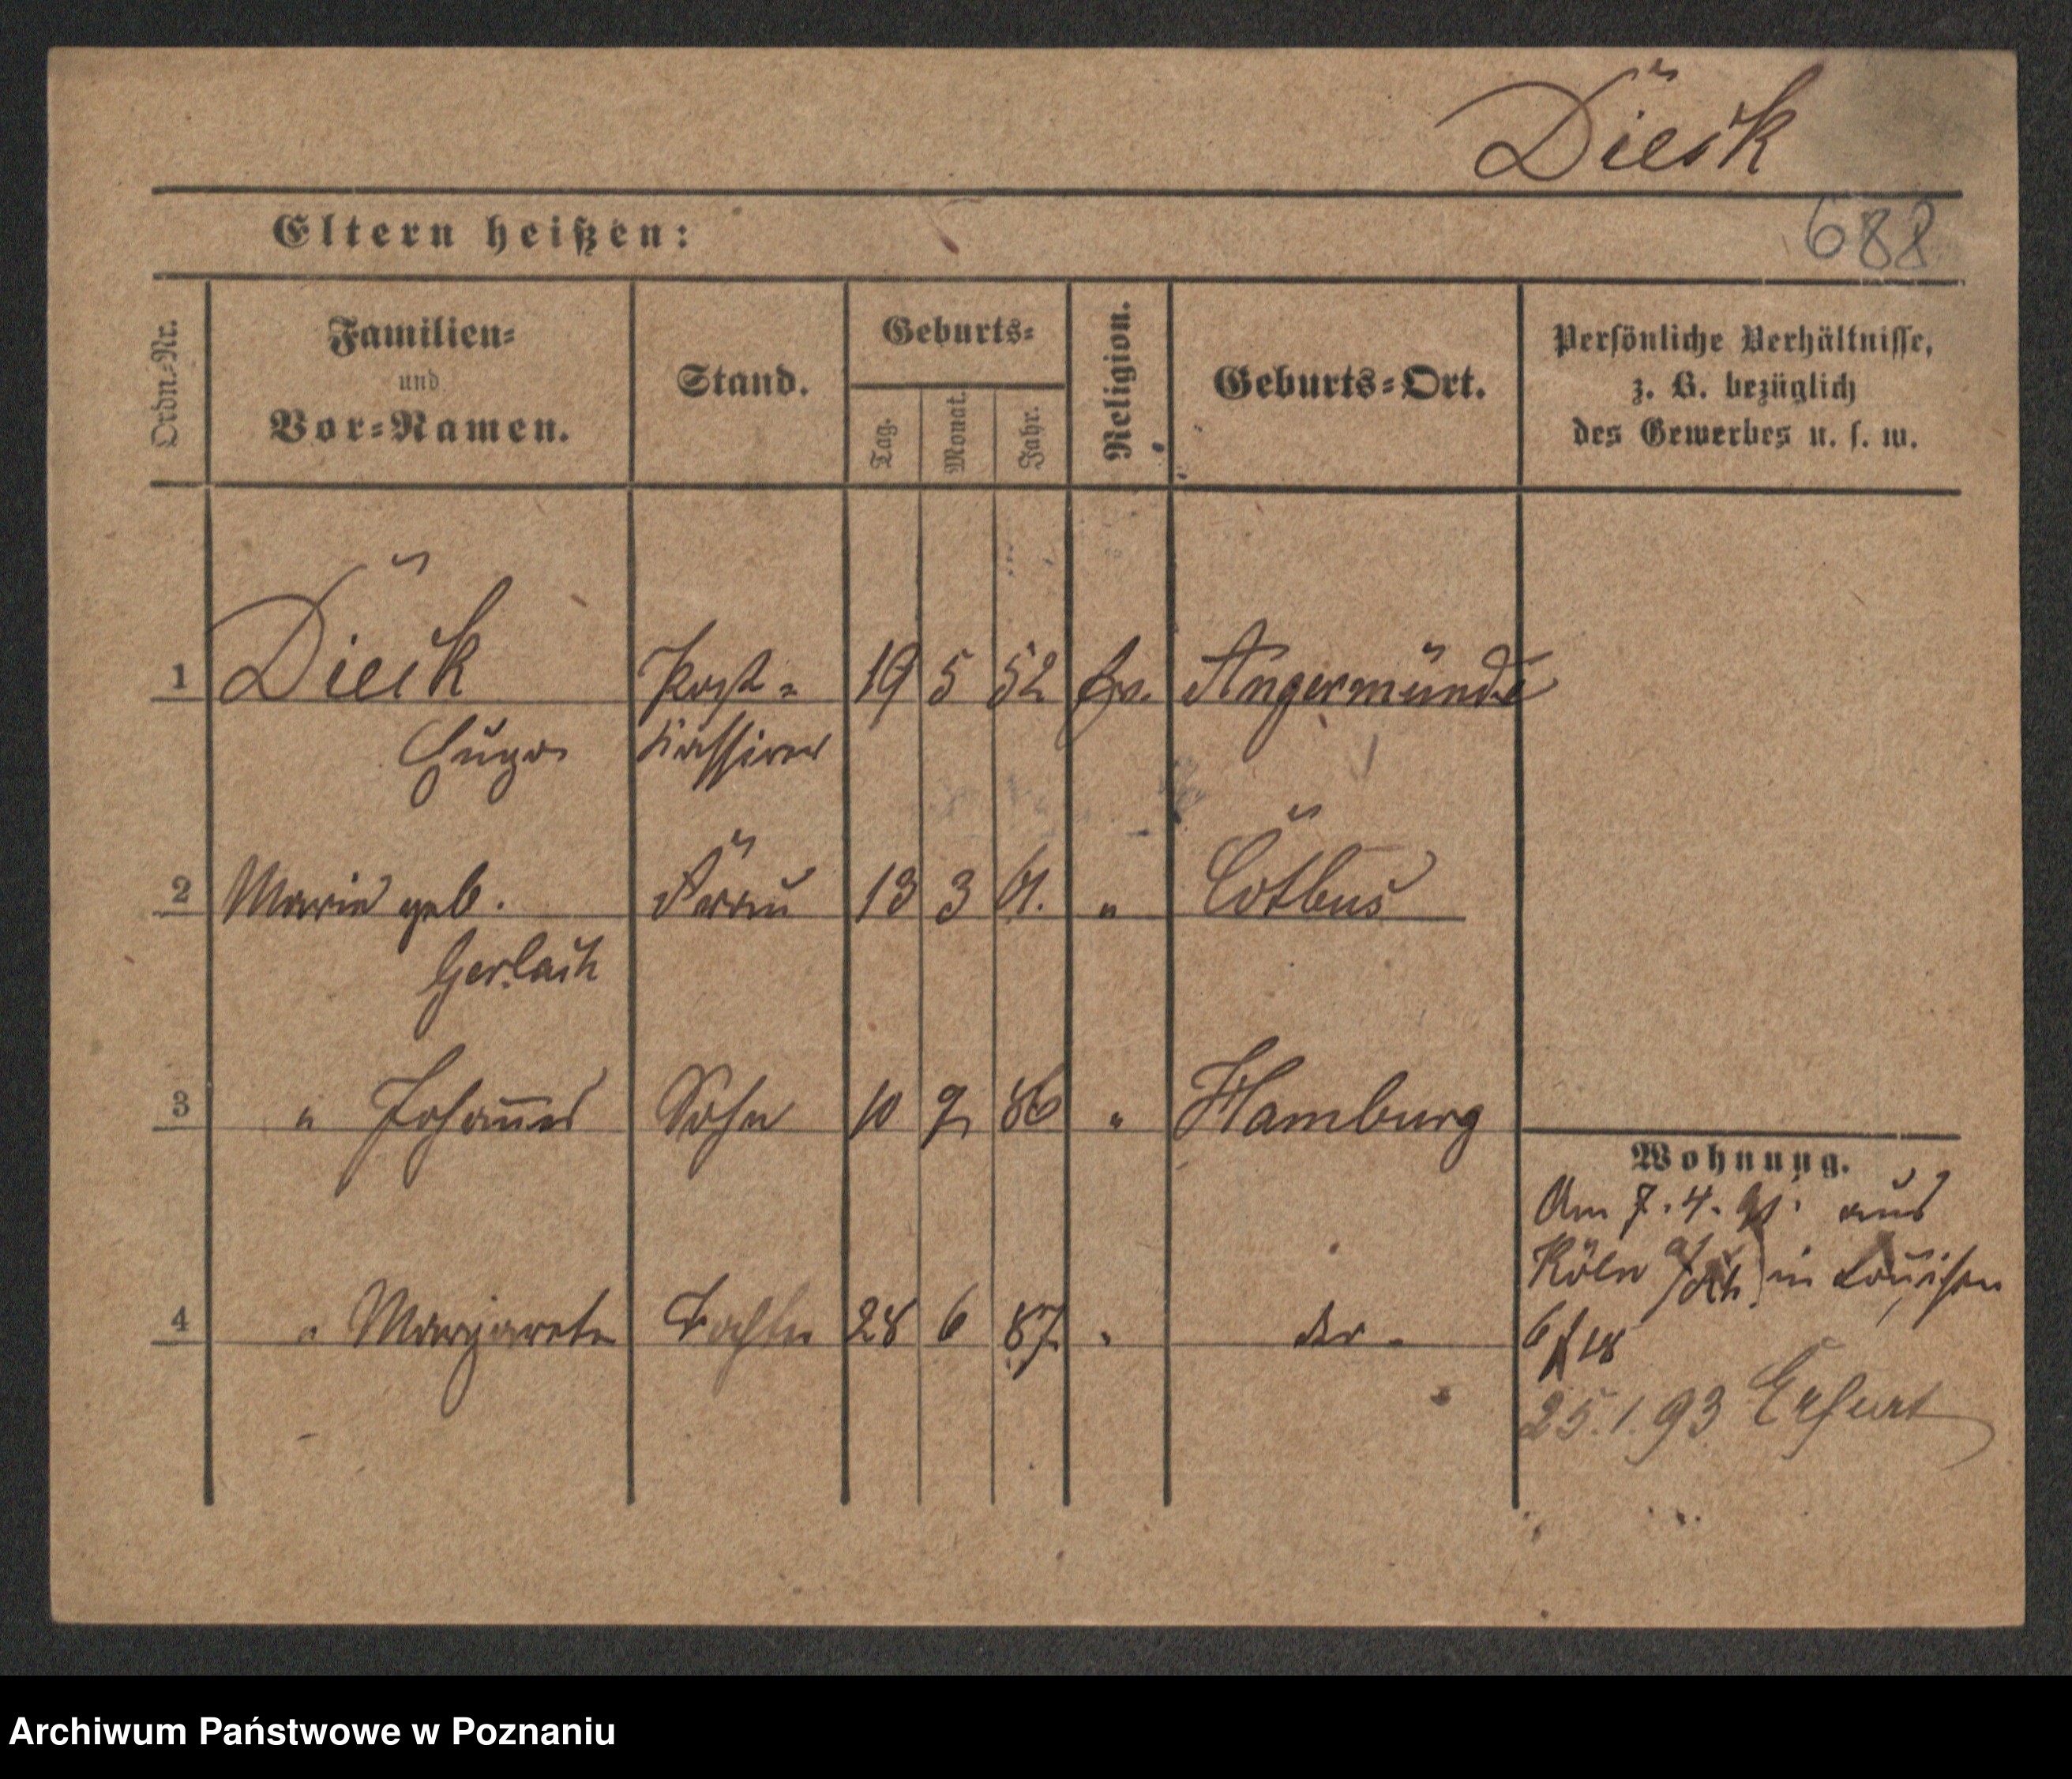 Dieck
Eltern heißen:
688
Ordn.-Nr.
Familien-
und
Vor-Namen.
Stand.
Geburts-
Tag.
Monat.
Jahr.
Religion.
Geburts-Ort.
Persönliche Verhältnisse,
z. B. bezüglich
des Gewerbes u. s. w.
1 Dieck Post- 19 5 52 Ev. Angermünde
Hugo Kassirer
2 Marie geb. Frau 13 3 61. " Cotbus
Gerlach
3 " Johannes Sohn 10 9 86 " Hamburg
4 " Margarete Tochter 28 6 87 "
Wohnung.
Am 7. 4. 91. aus
Köln a/Rh. in Louisen
6 18
25. 1. 93 Erfurt
Archiwum Państwowe w Poznaniu